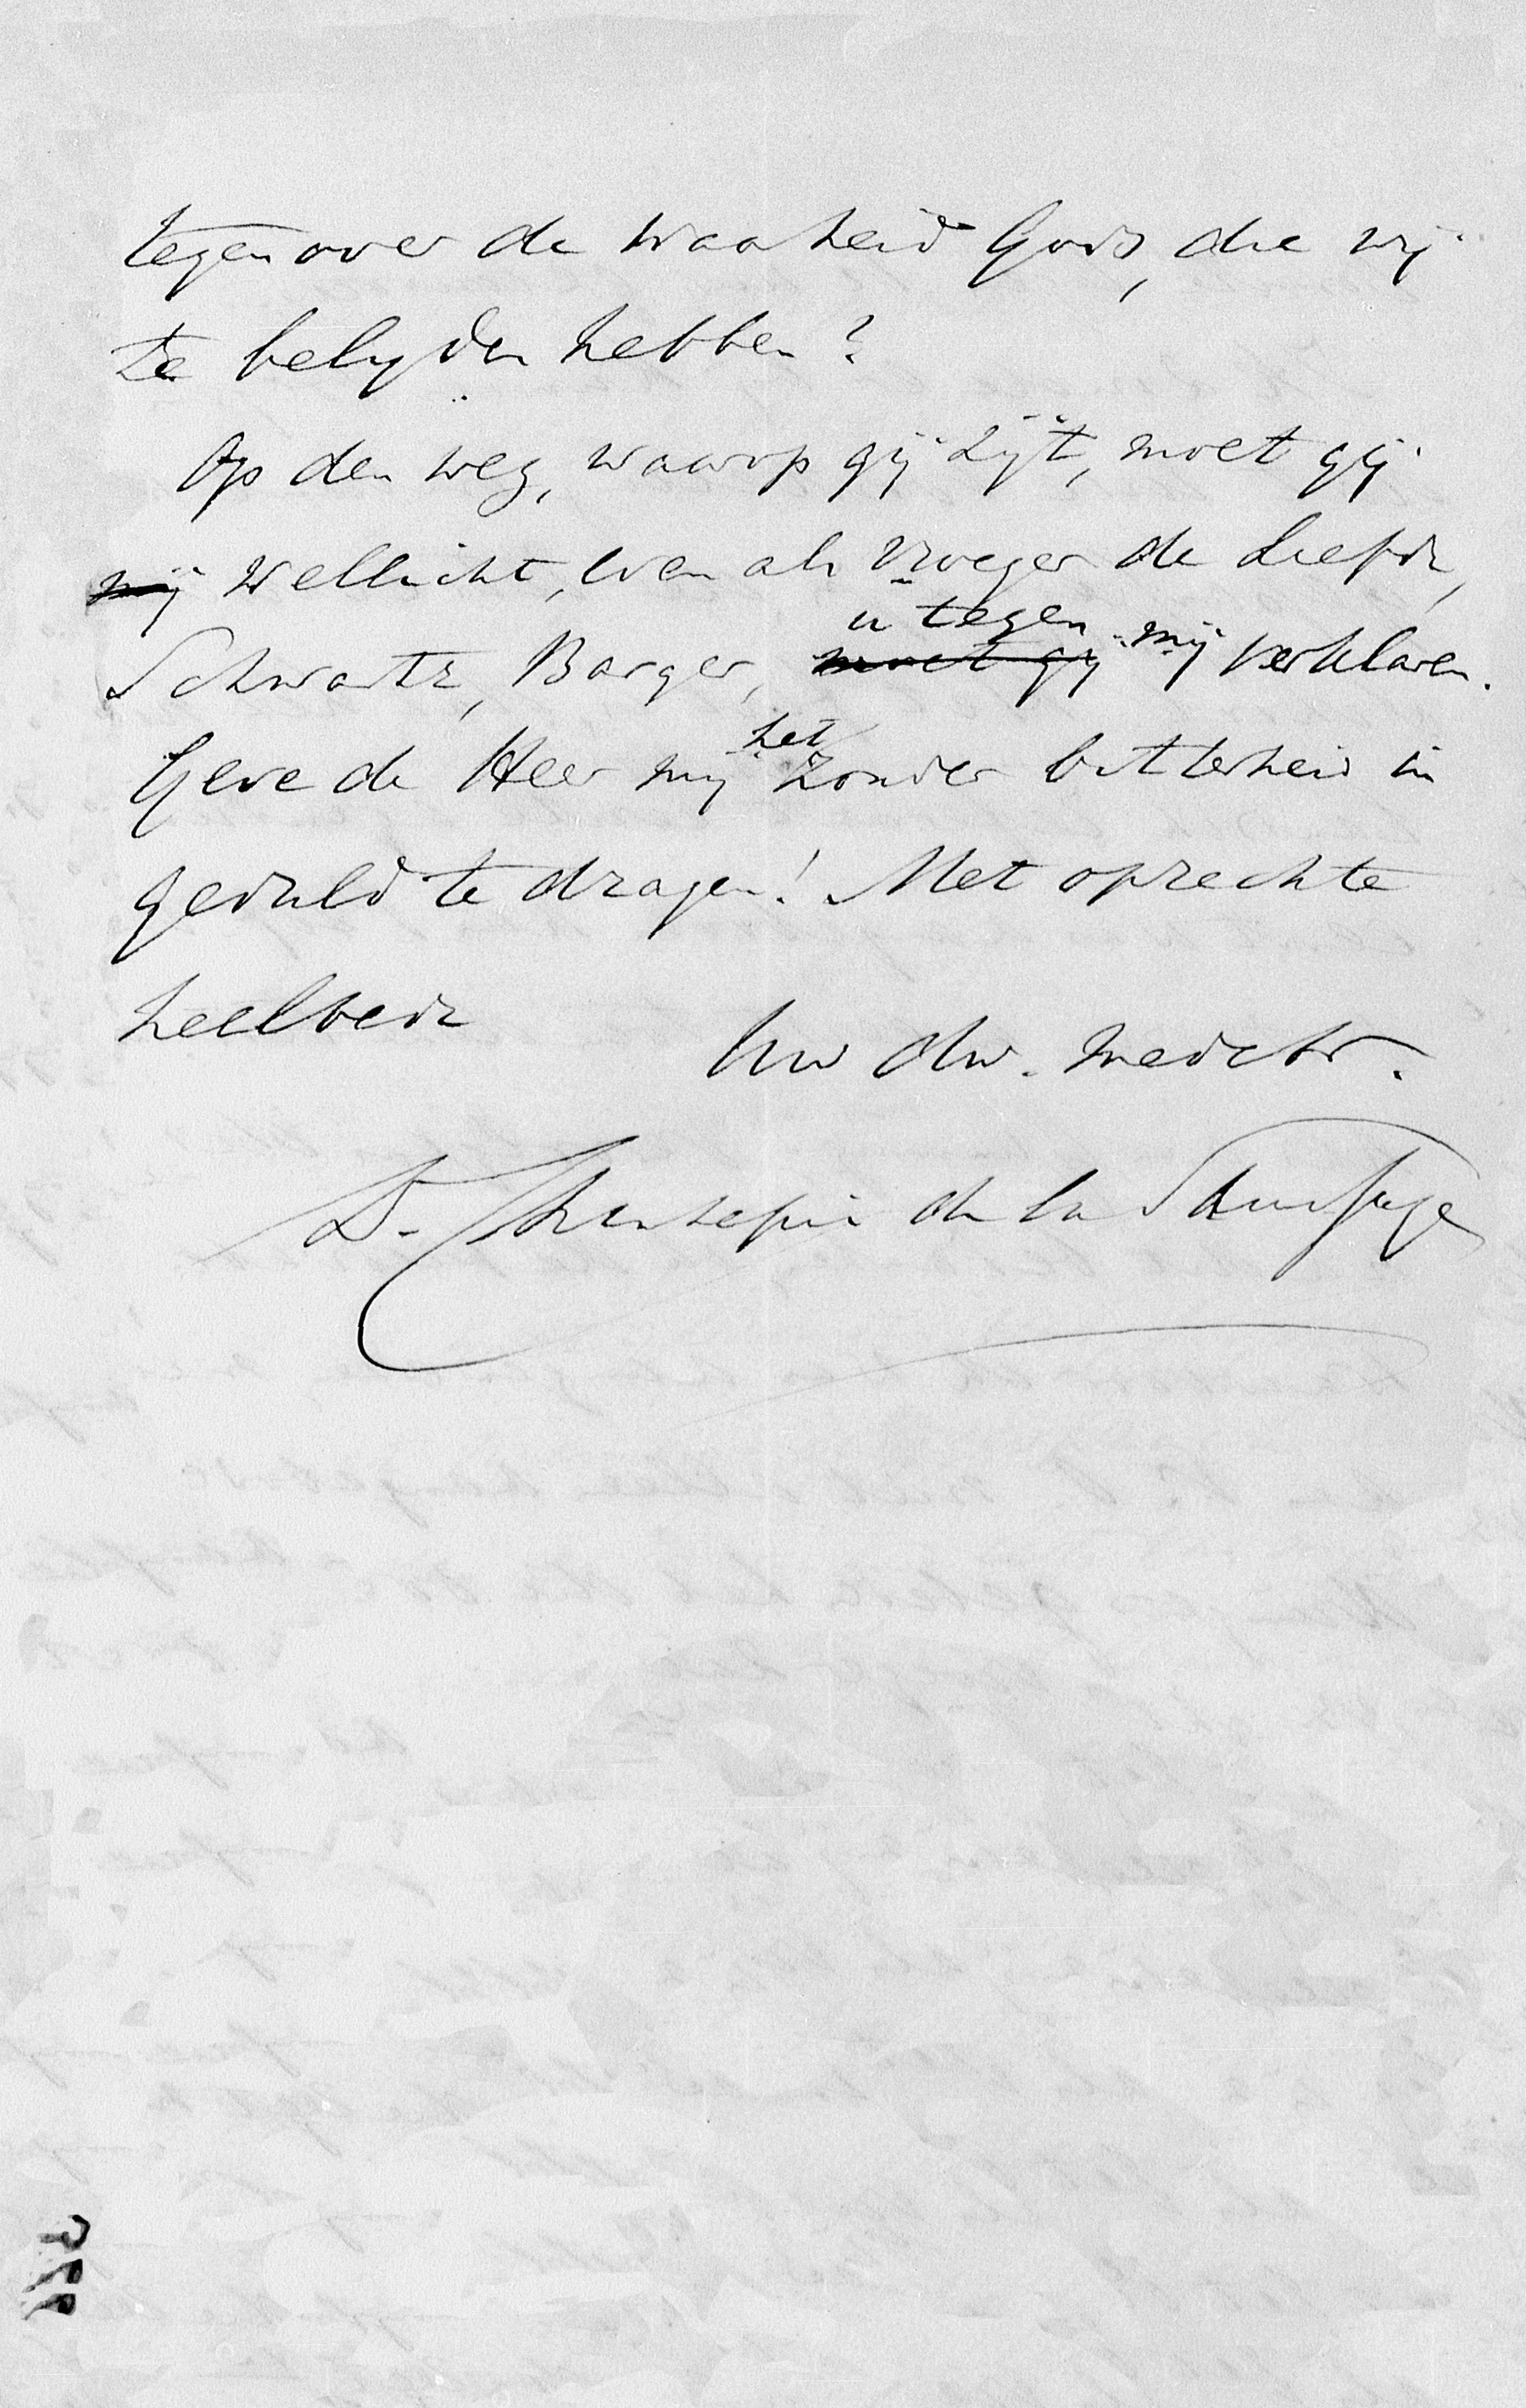 tegenover de waarheid Gods, die wij
te belijden hebben?
Op den weg, waarop gij zijt, moet gij
mij wellicht, even als vroeger de Liefde,
u tegen
Schwartz, Barger, moet gij mij verklaren.
het
Geve de Heer mij zonder bitterheid in
geduld te dragen! Met oprechte
heelbede
Uw dw. medebr.
D. Chantepie de la Saussaye